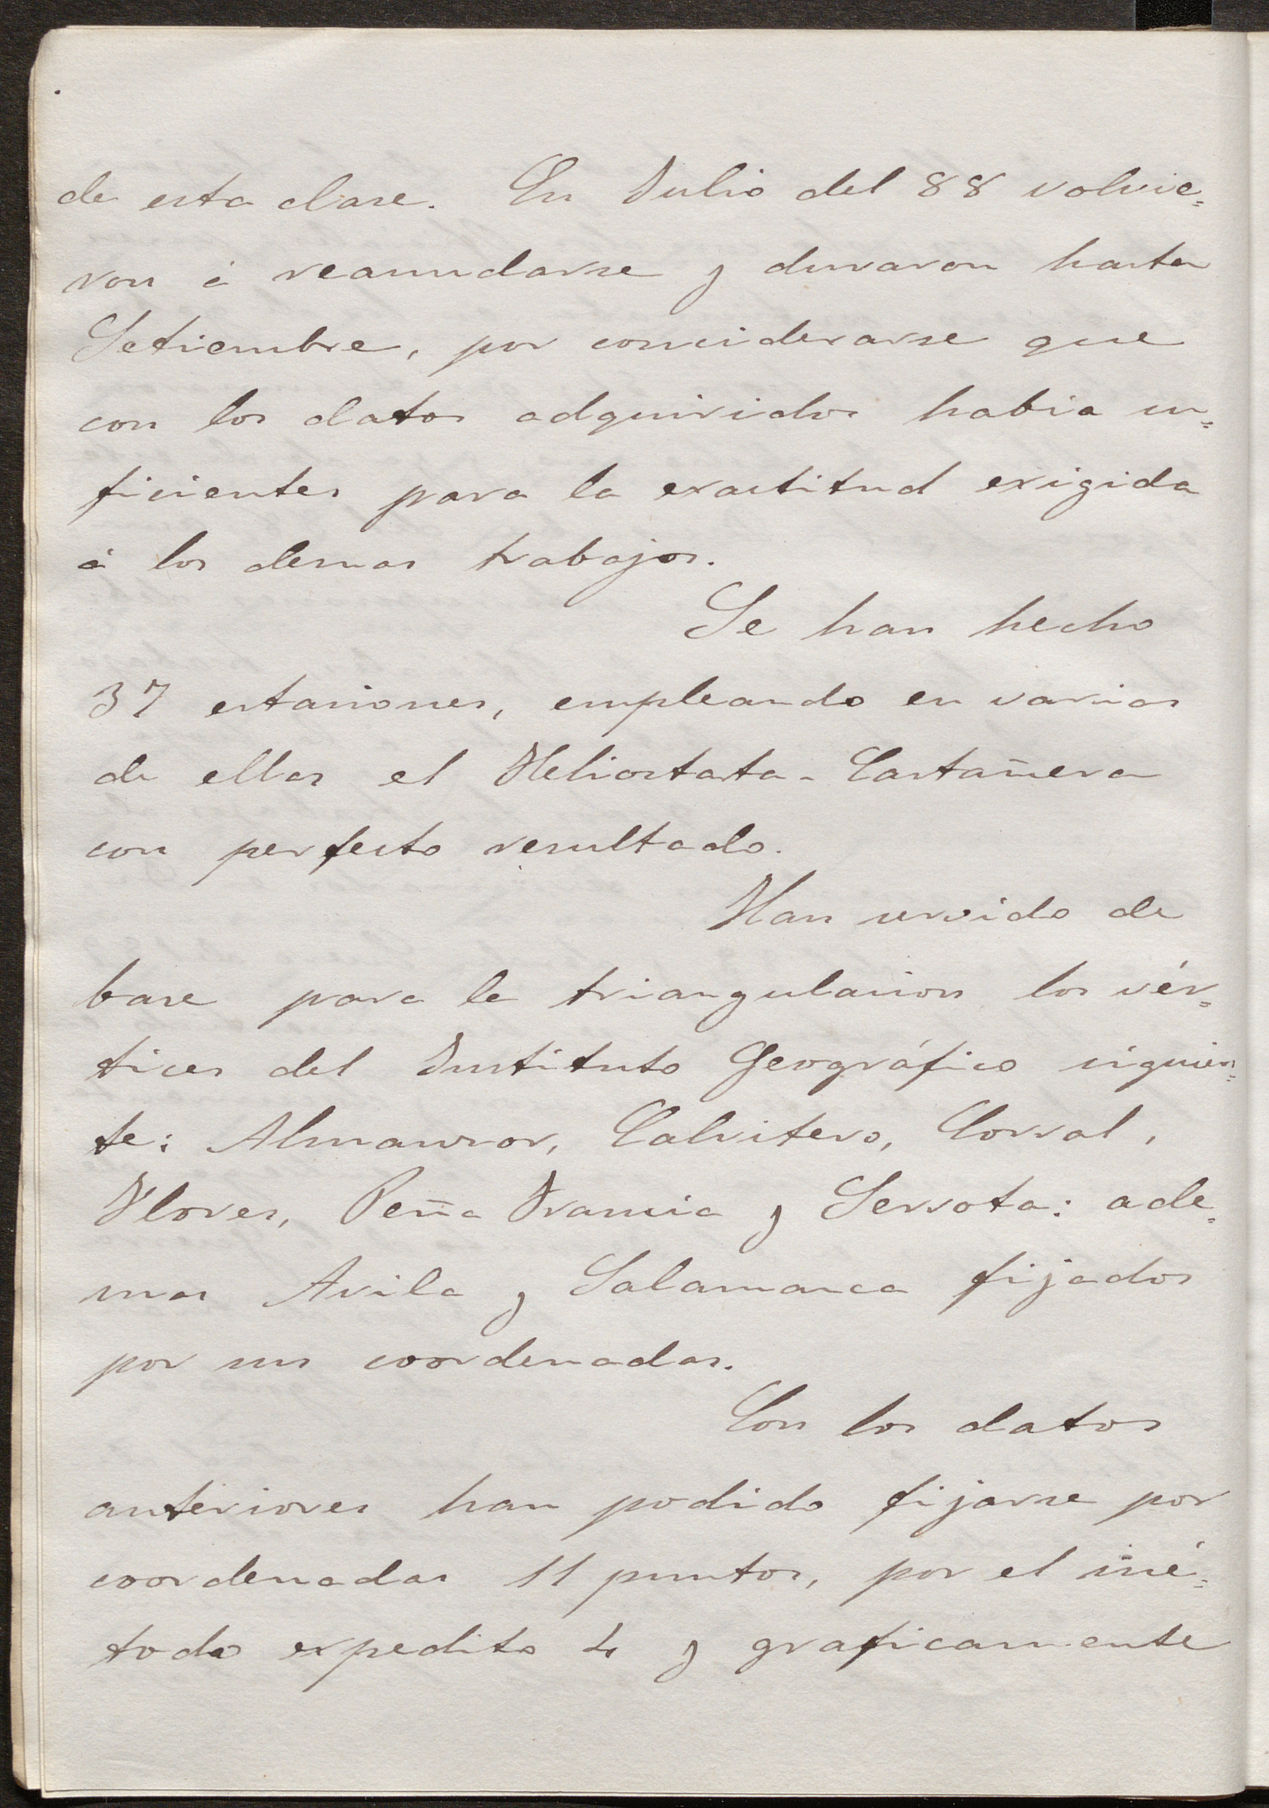 de esta clase. En Julio del 88 volvie=
ron á reanudarse y duraron hasta
Setiembre, por considerarse que
con los datos adquiridos habia su=
ficientes para la exactitud exigida
á los demas trabajos.
Se han hecho
37 estaciones, empleando en varias
de ellas el Heliostata-Castañera
con perfecto resultado.
Han servido de
base para la triangulacion los vér=
tices del Instituto Geográfico siguien=
te: Almanzor, Calvitero, Corral,
Flores, Peña Francia y Serrota: ade=
mas Avila y Salamanca fijados
por sus coordenadas.
Con los datos
anteriores han podido fijarse por
coordenadas 11 puntos, por el mé=
todo expedito 4 y graficamente